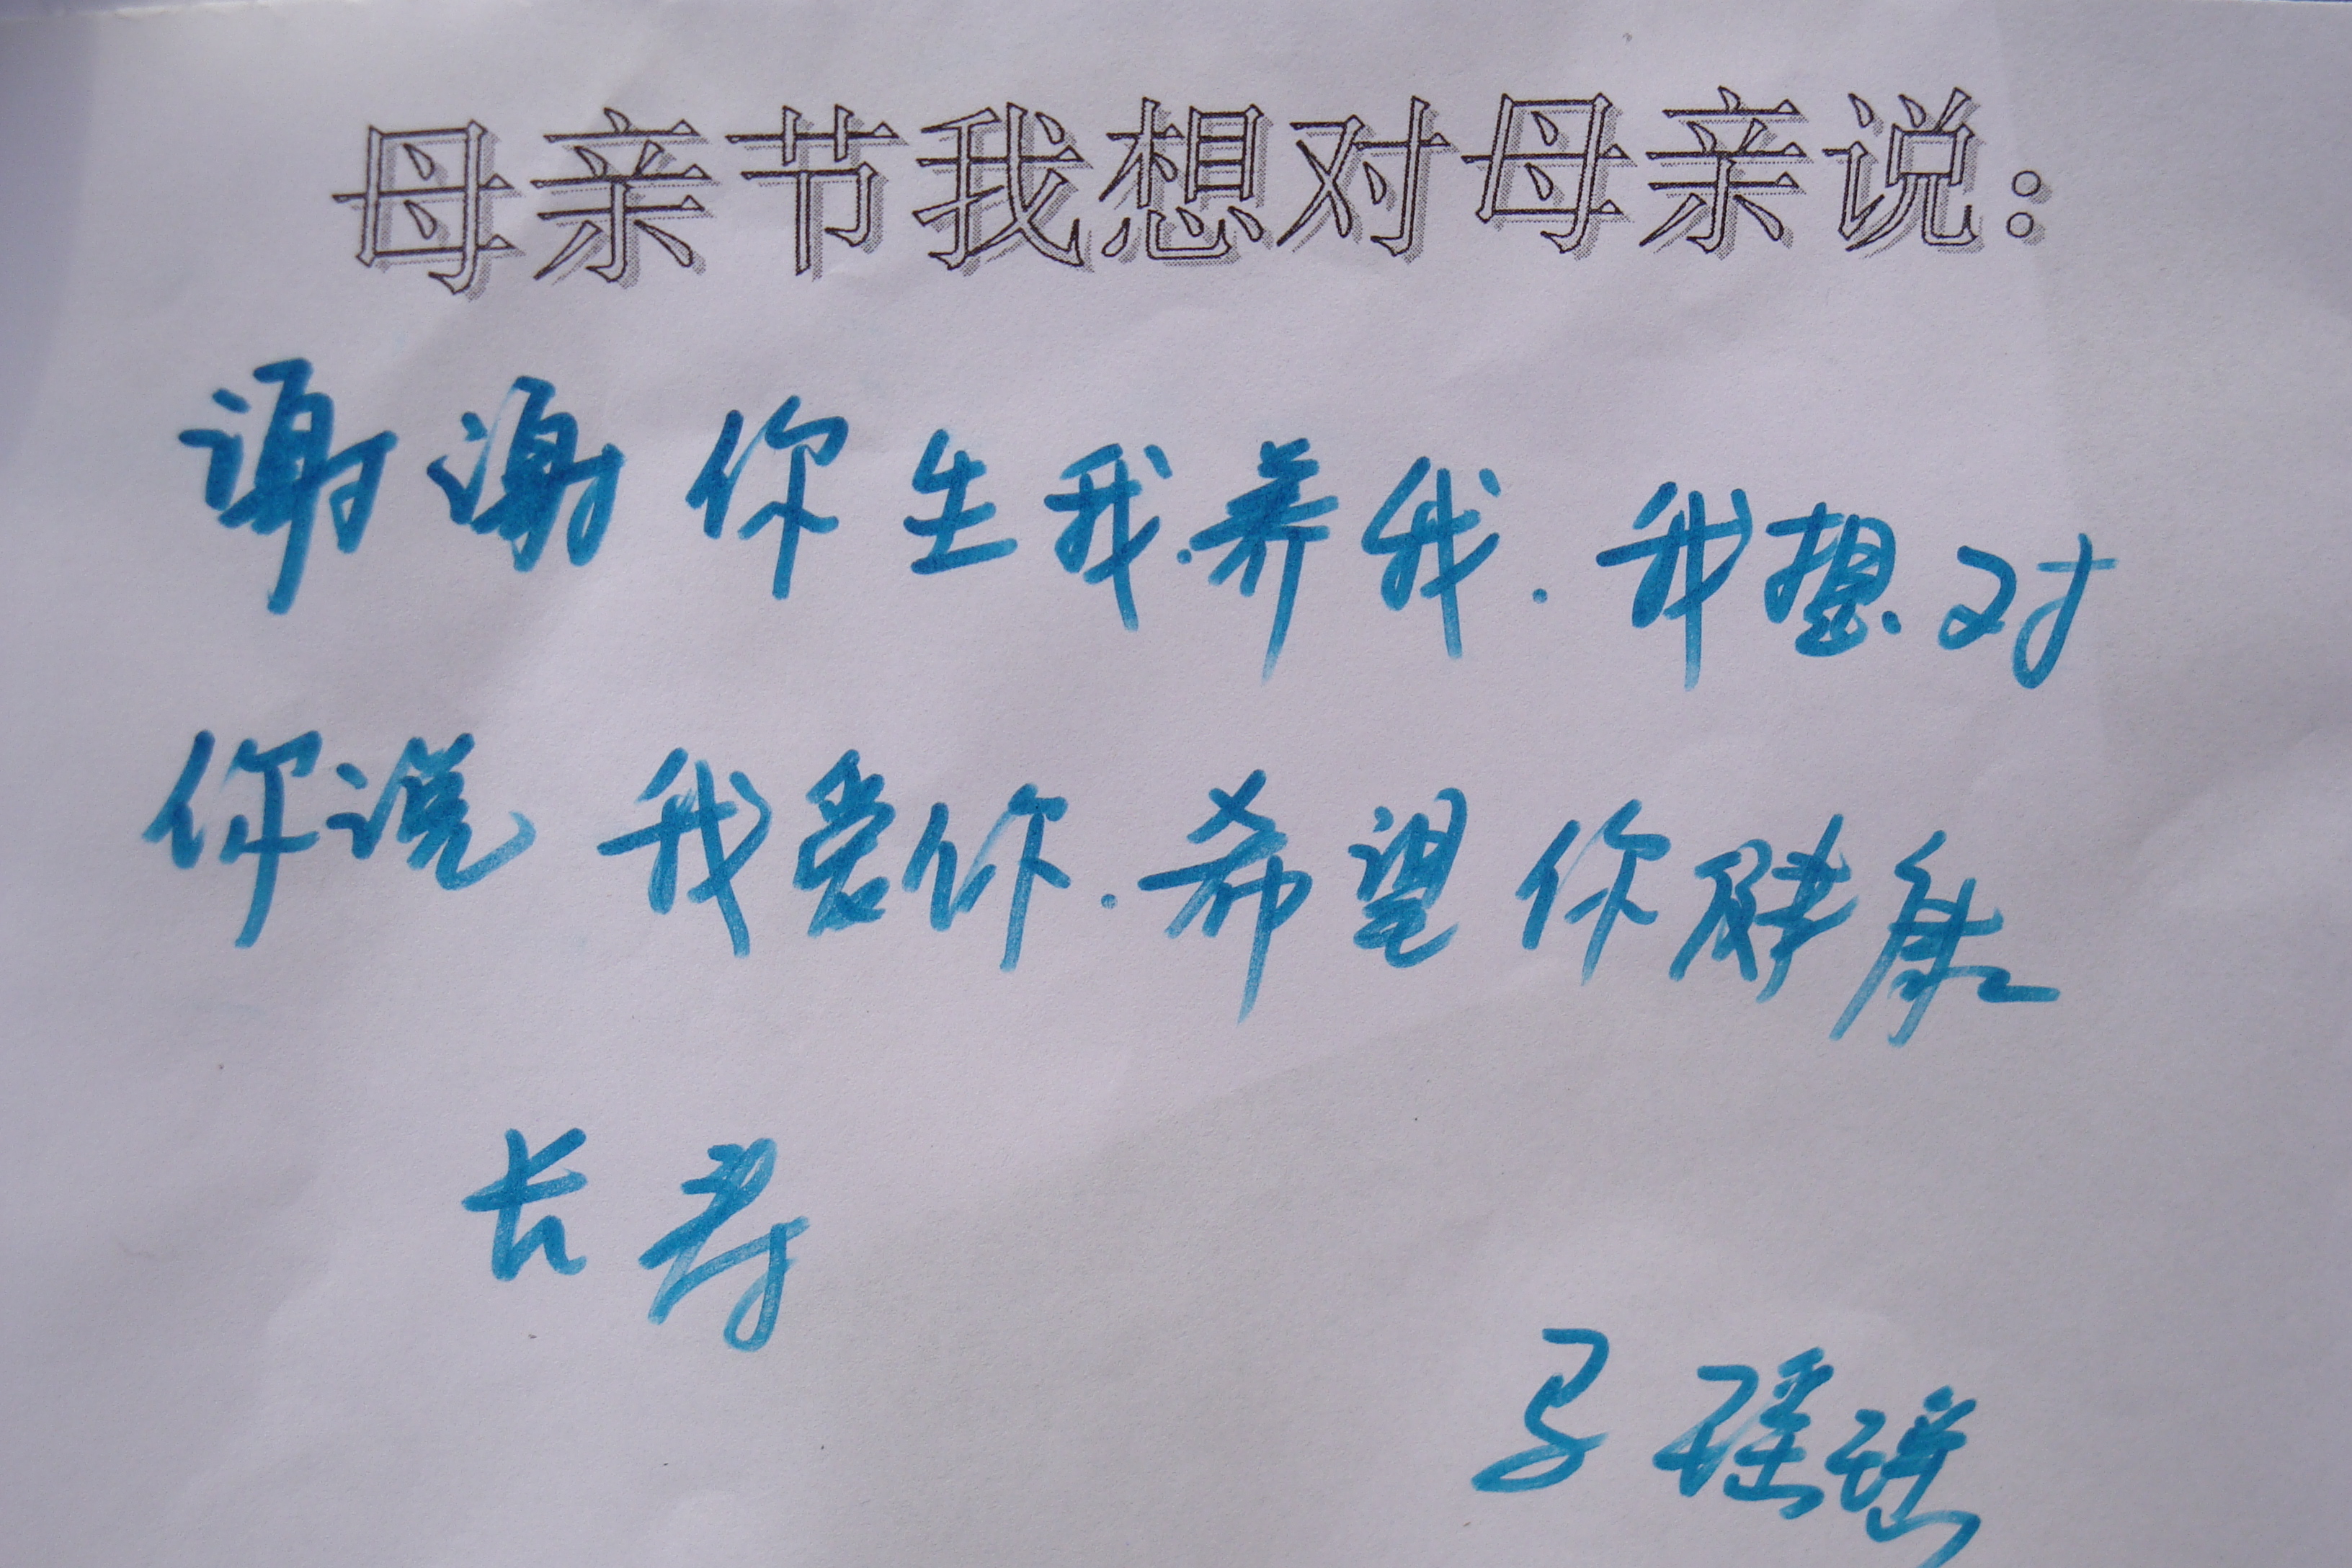 母亲节我想对母亲说：
谢谢你生我.养我.我想对
你说 我爱你.希望你健康
长寿
马瑶瑶